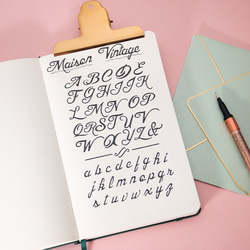 Maison Vintage
ABCDE
FGHIJK
LMNOP
QRSTUV
WXYZ&
abcdefghi
jklmnopqr
stuvwxyz